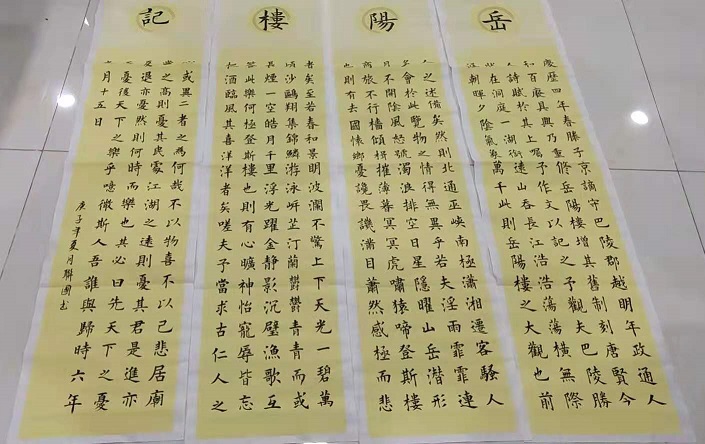 岳陽樓記
慶曆四年春滕子京謫守巴陵郡越明年政通人
和百廢具興乃重修岳陽樓增其舊制刻唐賢今
人詩賦於其上囑予作文以記之予觀夫巴陵勝
狀在洞庭一湖銜遠山吞長江浩浩蕩蕩橫無際
涯朝暉夕陰氣象萬千此則岳陽樓之大觀也前
人之述備矣然則北通巫峽南極瀟湘遷客騷人
多會於此覽物之情得無異乎若夫淫雨霏霏連
月不開陰風怒號濁浪排空日星隱曜山岳潛形
商旅不行檣傾楫摧薄暮冥冥虎嘯猿啼登斯樓
也則有去國懷鄉憂讒畏譏滿目蕭然感極而悲
者矣至若春和景明波瀾不驚上下天光一碧萬
頃沙鷗翔集錦鱗游泳岸芷汀蘭鬱鬱青青而或
長煙一空皓月千里浮光躍金靜影沉璧漁歌互
答此樂何極登斯樓也則有心曠神怡寵辱皆忘
把酒臨風其喜洋洋者矣嗟夫予嘗求古仁人之
心或異二者之為何哉不以物喜不以己悲居廟
堂之高則憂其民處江湖之遠則憂其君是進亦
憂退亦憂然則何時而樂也其必曰先天下之憂
而憂後天下之樂乎噫微斯人吾誰與歸時六年
九月十五日
庚子年夏月聯